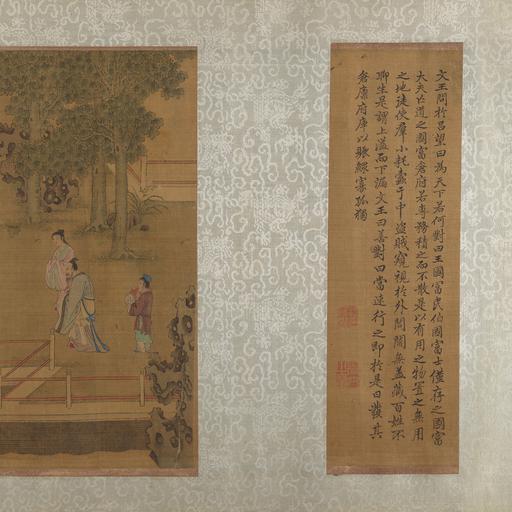 文王問於呂望曰為天下若何對曰王國富民伯國富士僅存之國富
大夫亡道之國富倉府若專務積之而不散是以有用之物置之無用
之地徒使羣小耗蠹于中盜賊窺視於外閭閻無蓋藏百姓不
聊生是謂上溢而下漏文王曰善對曰當速行之即於是日發其
倉廩府庫以賑鰥寡孤獨